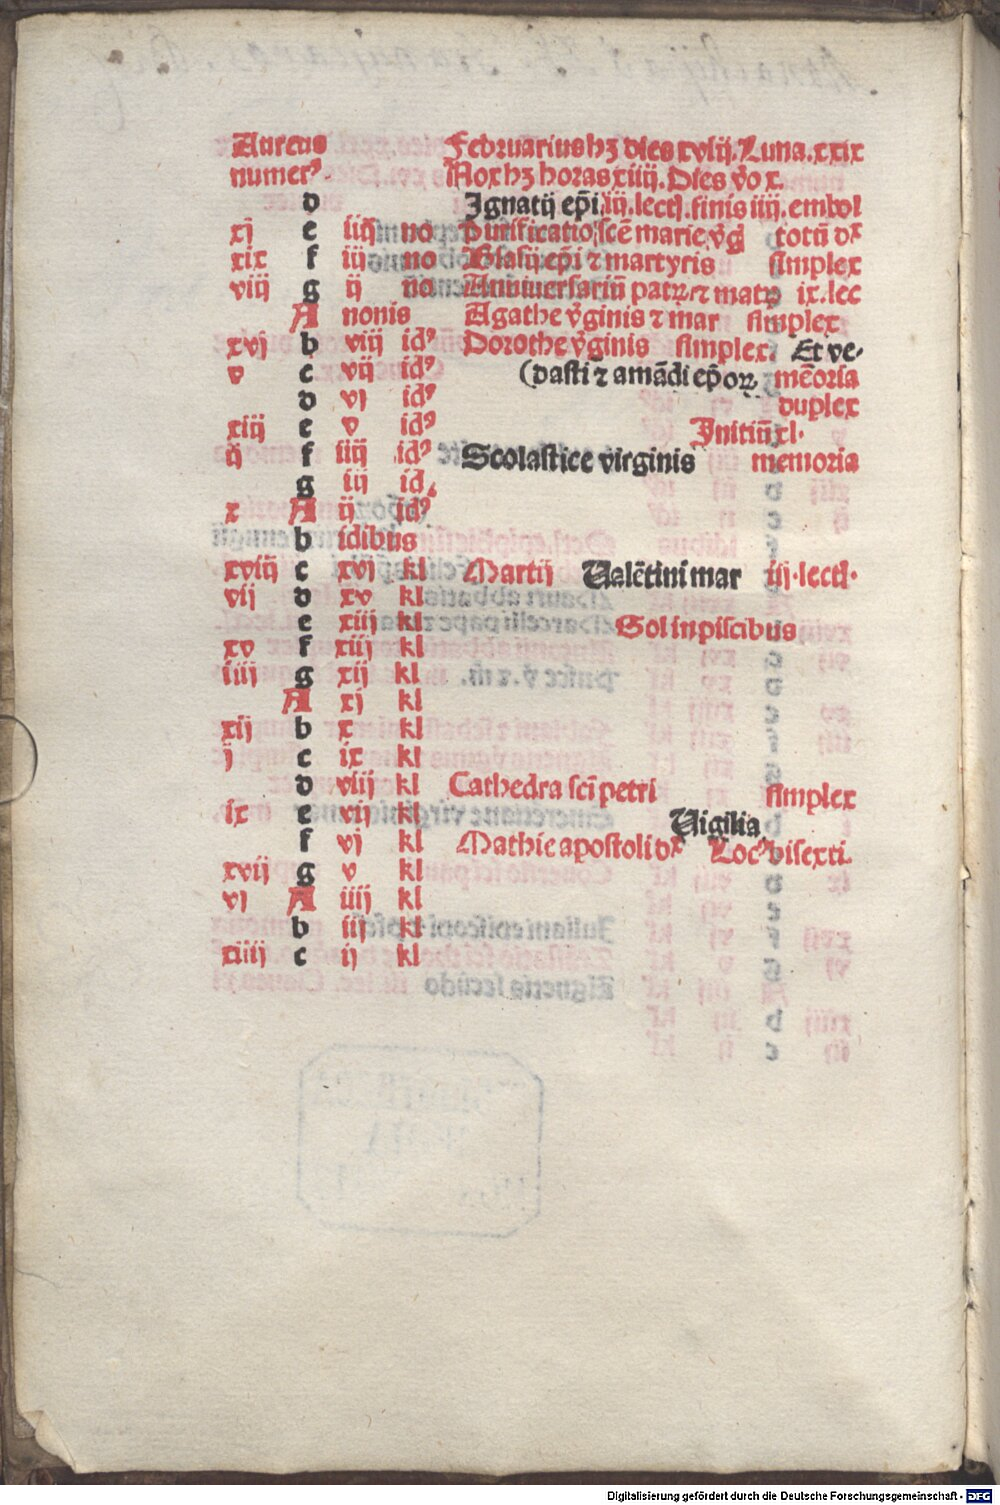 Aureus Februarius hꝫ dies xxviij. Luna. xxix
numerꝰ. Nox hꝫ horas xiiij. Dies v̊o x.
d Ignatij ep̄i. iij. lectl. finis iiij. embol
xj e iiij no Purificatio sc̄e marie v̊ḡ totū dx
xix f iij no Blasij ep̄i ⁊ martyris simplex
viij g ij no Anniuersariū patꝝ ⁊ matꝝ ix. lec
A nonis Agathe v̊ginis ⁊ mar simplex
xvj b viij idꝰ Dorothe v̊ginis simplex. Et ve-
v c vij idꝰ (dasti ⁊ amādi ep̄oꝝ. mēoria
d vj idꝰ duplex
xiij e v idꝰ Initiū xl.
ij f iiij idꝰ Scolastice virginis memoria
g iij idꝰ
x A ij idꝰ
b idibus
xviij c xvj kl Martij Ualētini mar iij. lectl.
vij d xv kl
e xiiij kl Sol in piscibus
xv f xiij kl
iiij g xij kl
A xj kl
xij b x kl
j c ix kl
d viij kl Cathedra sc̄i petri simplex
ix e vij kl Uigilia
f vj kl Mathie apostoli dx Locꝰ bisexti.
xvij g v kl
vj A iiij kl
b iij kl
xiiij c ij kl
Digitalisierung gefördert durch die Deutsche Forschungsgemeinschaft - DFG